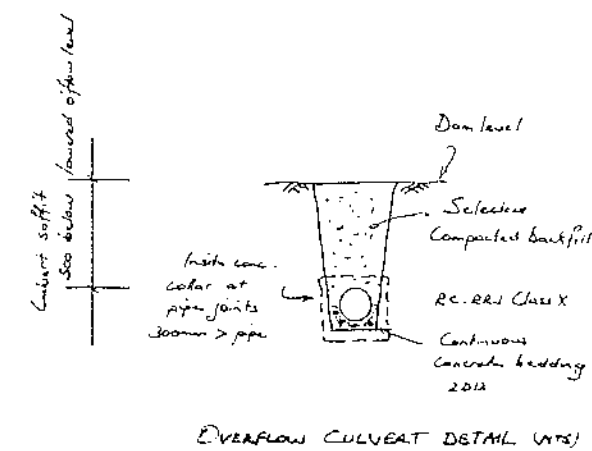 Culvert soffit
500 below lowered o/flow level
Dam level
Selective
Compacted backfill
Insitu conc.
collar at
pipe joints
300mm > pipe
RC-RRJ Class X
Continuous
Concrete bedding
OVERFLOW CULVERT DETAIL (NTS)